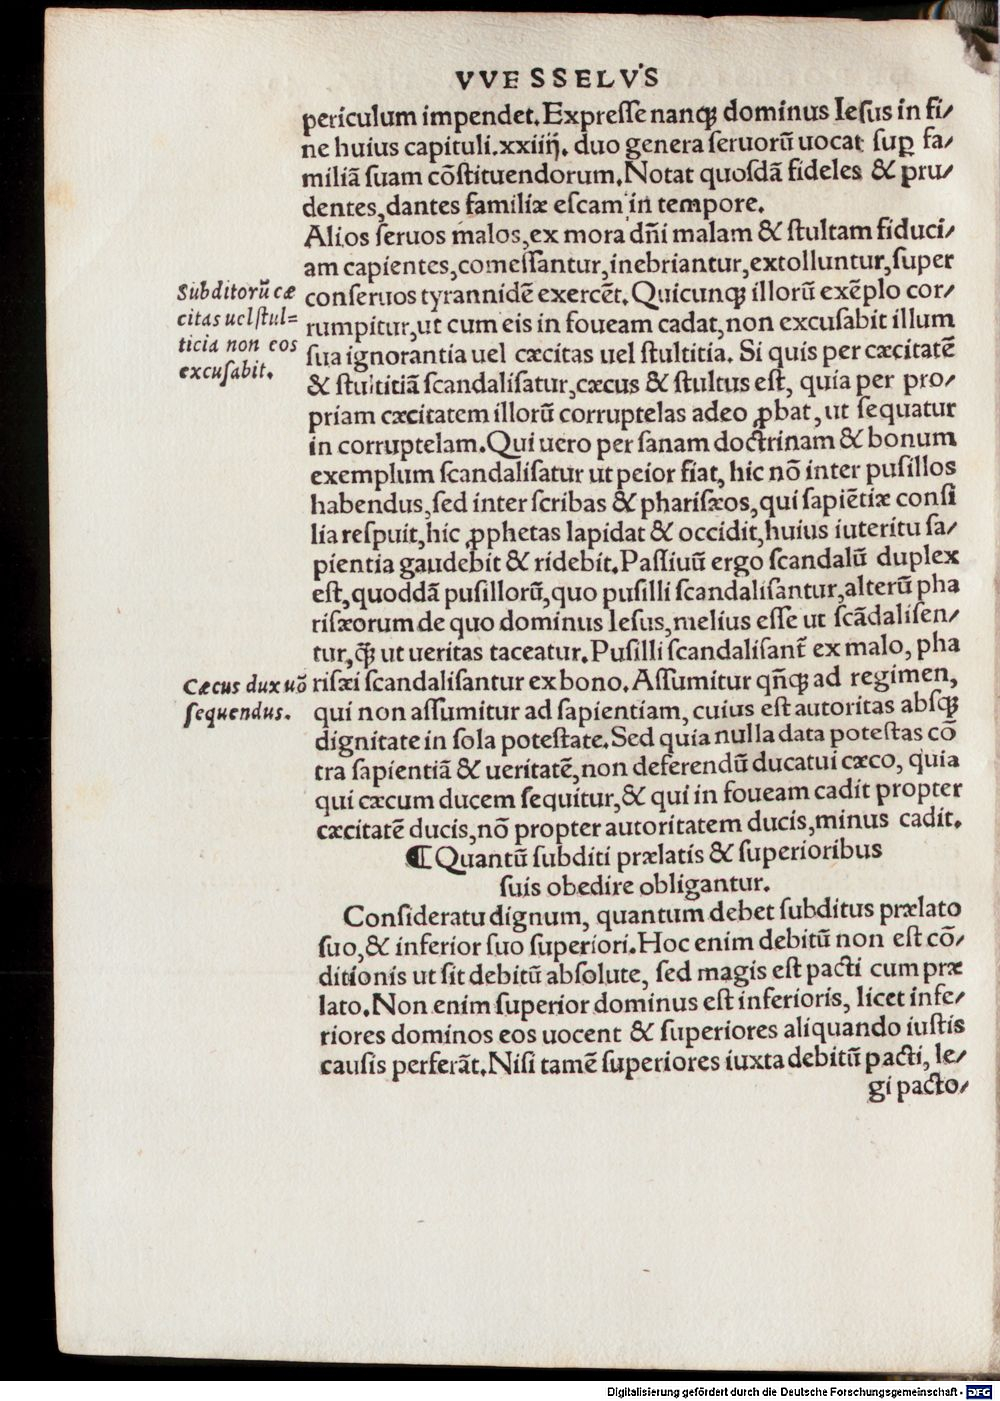 VVESSELVS
periculum impendet. Expresse nanqꝫ dominus Iesus in fi/
ne huius capituli. xxiiij. duo genera seruorū uocat sup̱ fa/
miliā suam cōstituendorum. Notat quosdā fideles & pru/
dentes, dantes familiæ escam in tempore.
Alios seruos malos, ex mora dñi malam & stultam fiduci/
am capientes, comessantur, inebriantur, extolluntur, super
Subditorū cæ
citas uel stul=
ticia non eos
excusabit.
conseruos tyrannidē exercēt. Quicunqꝫ illorū exēplo cor/
rumpitur, ut cum eis in foueam cadat, non excusabit illum
sua ignorantia uel cæcitas uel stultitia. Si quis per cæcitatē
& stultitiā scandalisatur, cæcus & stultus est, quia per pro/
priam cæcitatem illorū corruptelas adeo ꝓbat, ut sequatur
in corruptelam. Qui uero per sanam doctrinam & bonum
exemplum scandalisatur ut peior fiat, hic nō inter pusillos
habendus, sed inter scribas & pharisæos, qui sapiētiæ consi
lia respuit, hic ꝓphetas lapidat & occidit, huius iuteritu sa/
pientia gaudebit & ridebit. Passiuū ergo scandalū duplex
est, quoddā pusillorū, quo pusilli scandalisantur, alterū pha
risæorum de quo dominus Iesus, melius esse ut scādalisen/
tur, ꝙ̄ ut ueritas taceatur. Pusilli scandalisant̄ ex malo, pha
Cæcus dux nō
sequendus.
risæi scandalisantur ex bono. Assumitur qñqꝫ ad regimen,
qui non assumitur ad sapientiam, cuius est autoritas absqꝫ
dignitate in sola potestate. Sed quia nulla data potestas cō
tra sapientiā & ueritatē, non deferendū ducatui cæco, quia
qui cæcum ducem sequitur, & qui in foueam cadit propter
cæcitatē ducis, nō propter autoritatem ducis, minus cadit.
¶ Quantū subditi prælatis & superioribus
suis obedire obligantur.
Consideratu dignum, quantum debet subditus prælato
suo, & inferior suo superiori. Hoc enim debitū non est cō/
ditionis ut sit debitū absolute, sed magis est pacti cum præ
lato. Non enim superior dominus est inferioris, licet infe/
riores dominos eos uocent & superiores aliquando iustis
causis perferāt. Nisi tamē superiores iuxta debitū pacti, le/
gi pacto/
Digitalisierung gefördert durch die Deutsche Forschungsgemeinschaft - DFG